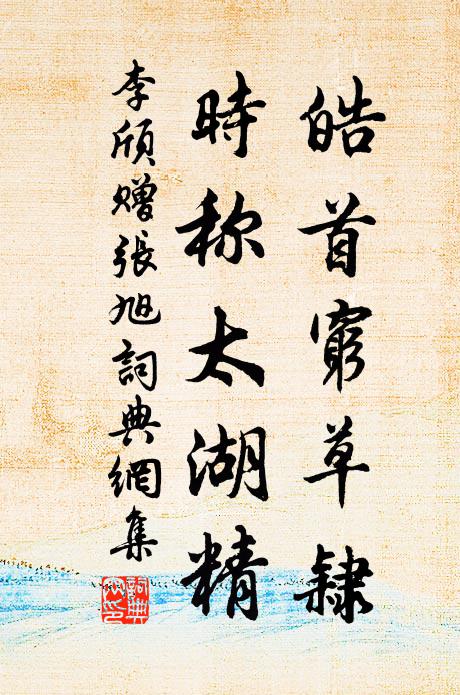 皓首窮草隷
時称太湖精
李頎贈張旭詞典網集